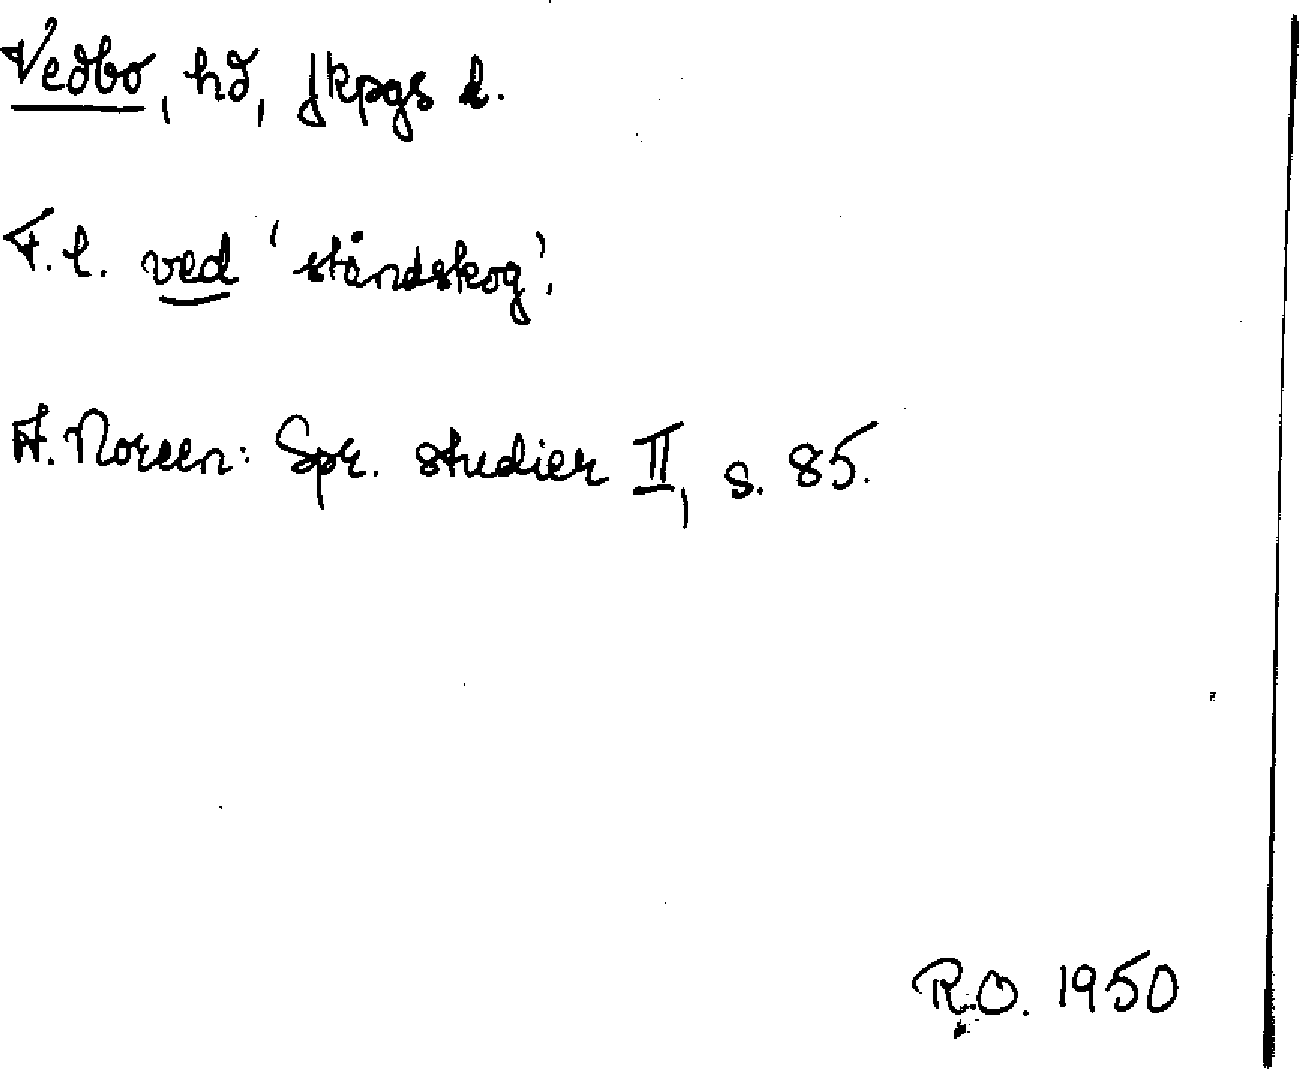 Vedbo, hd, Jkpgs l.
F.l. ved 'ståndskog'.
A. Noreen: Spr. studier II, s. 85.
R.O. 1950